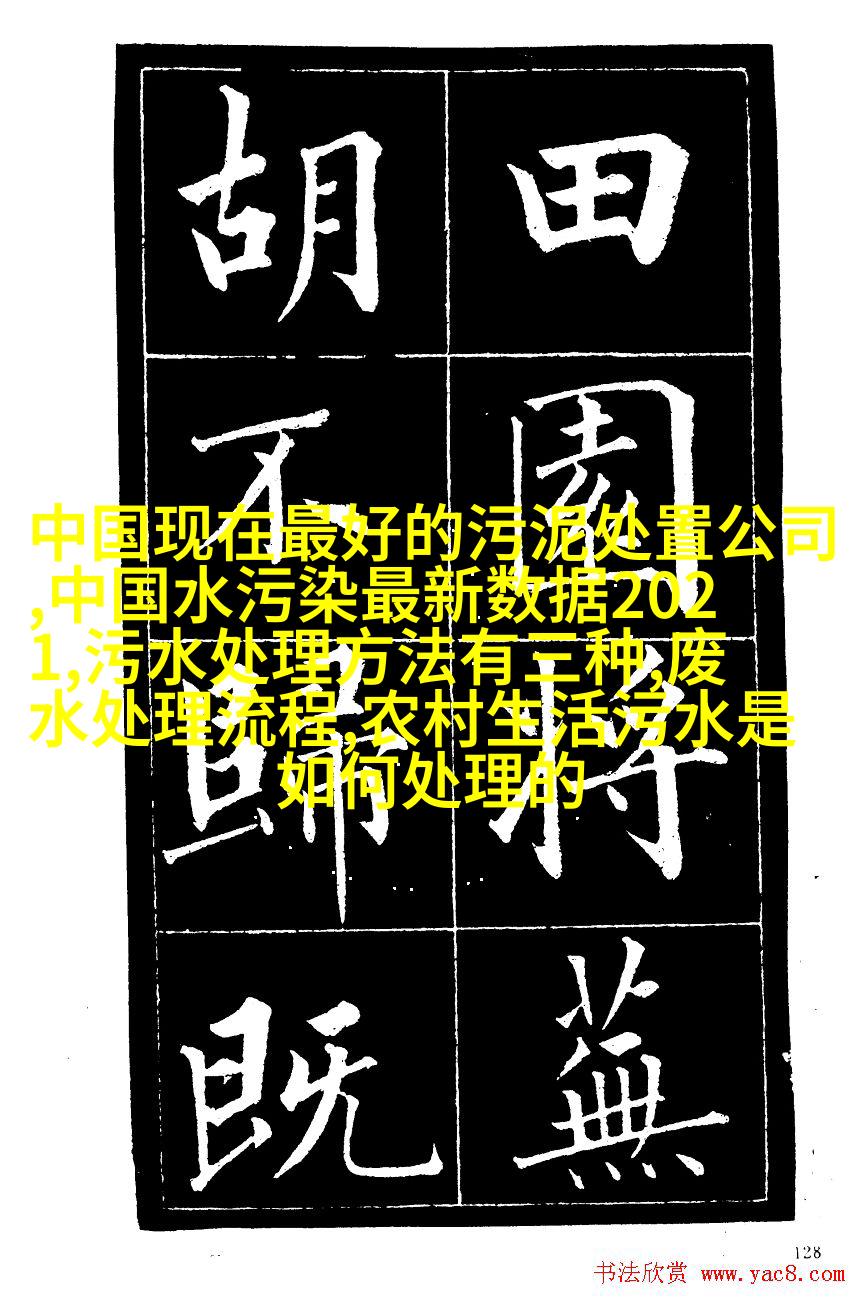 田園將蕪
胡不歸既
中国现在最好的污泥处置公司
,中国水污染最新数据202
1,污水处理方法有三种,废
水处理流程,农村生活污水是
如何处理的
128
书法欣赏 www.yac8.com